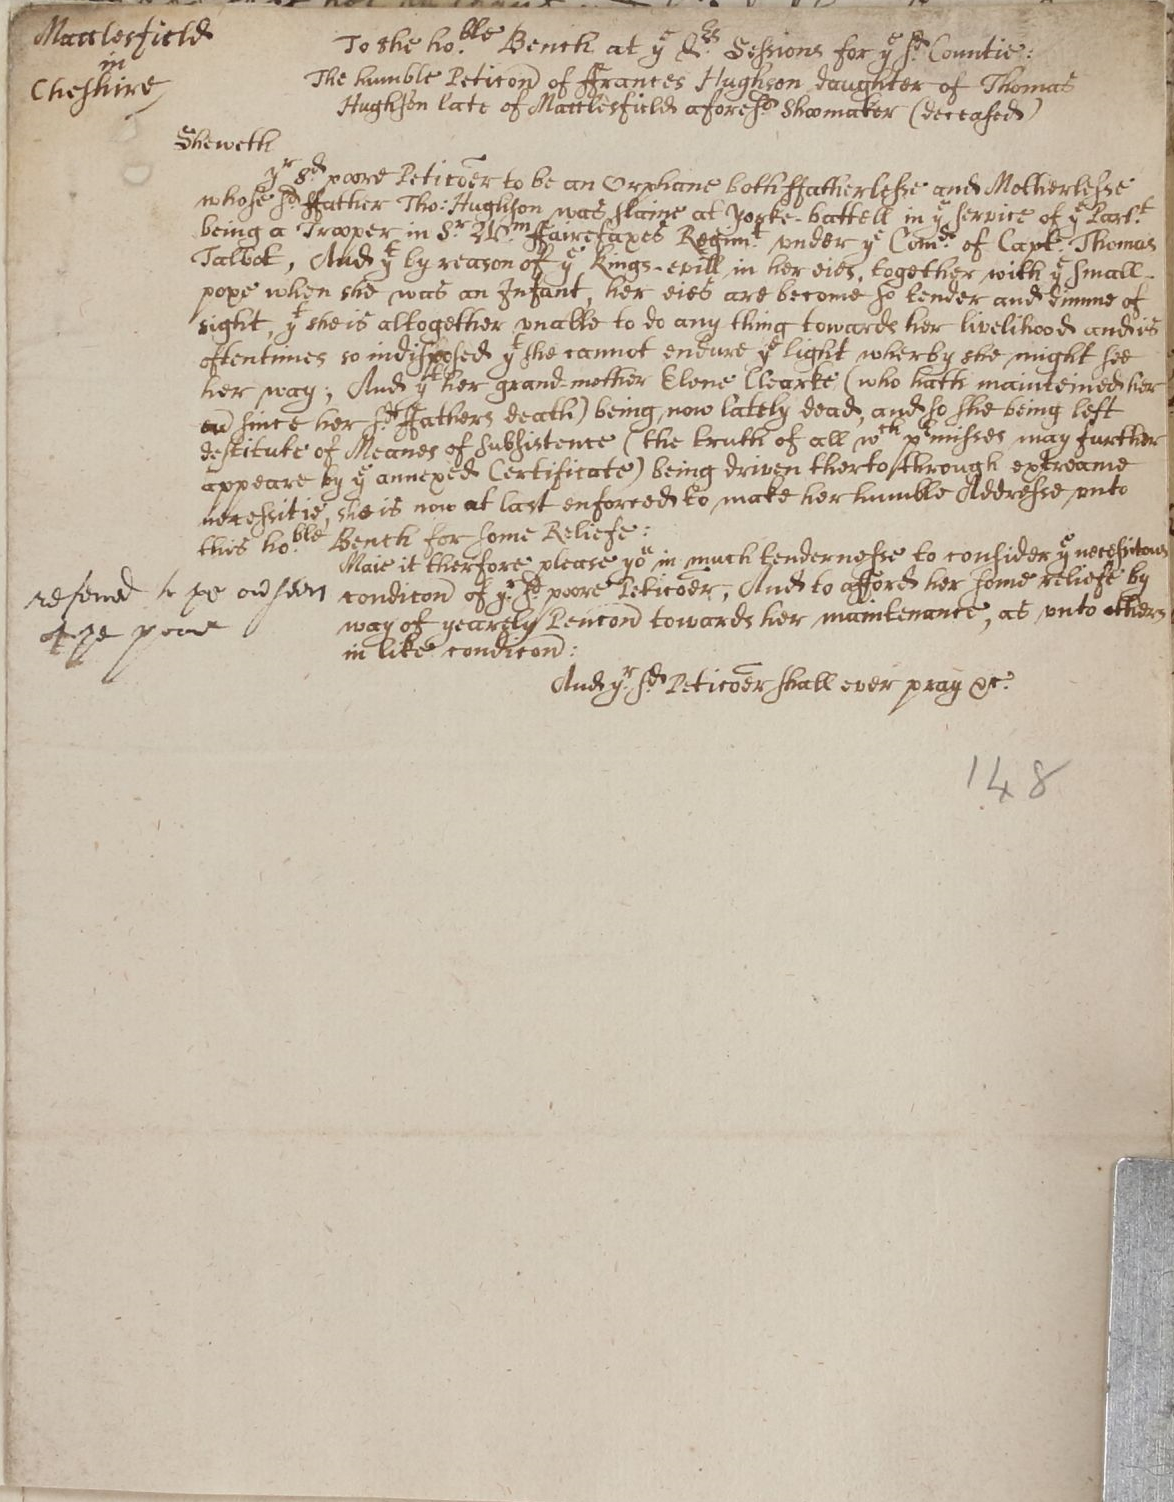 Macclesfield
in
Cheshire
To the ho:ble Bench at ye Qrs Sessions for ye sd Countie:
The humble Peticon of ffrances Hughson daughter of Thomas
Hughson late of Macclesfield aforesd Shoomaker (deceased)
Sheweth
yr sd poore Peticoer to be an Orphane both ffatherlesse and Motherlesse
whose sd ffather Tho: Hughson was slaine at Yorke-battell in ye service of ye Parlt
being a Trooper in Sr Wm ffairefaxes Regimt vnder ye Comd of Capt: Thomas
Talbot, And yt by reason of ye Kings-evill in her eies, together with ye small-
poxe when she was an Infant, her eies are become so tender and dimme of
sight, yt she is altogether vnable to do any thing towards her livelihood and is
oftentimes so indisposed yt she cannot endure ye light wherby she might see
her way; And yt her grand-mother Elene Clearke (who hath mainteined her
since her sd ffathers death) being now lately dead, and so she being left
destitute of Meanes of subsistence (the truth of all wch pemisses may further
appeare by ye annexed Certificate) being driven therto through extreame
necessitie, she is now at last enforced to make her humble Addresse vnto
this ho:ble Bench for some Reliefe:
Maie it therfore please you in much tendernesse to consider ye necessitous
condicon of yr sd poore Peticoer, And to afford her some reliefe by
way of yearely Pencon towards her maintenance, as vnto others
in like condicon:
And yr sd Peticoer shall ever pray &c:
refered to ye ouerseers
of ye poore
148